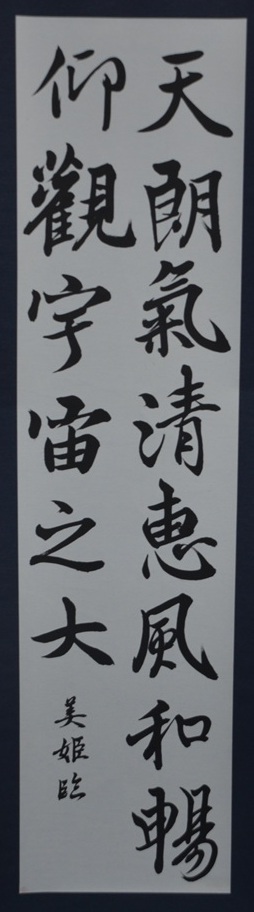 天朗氣清惠風和暢
仰觀宇宙之大
美姫臨